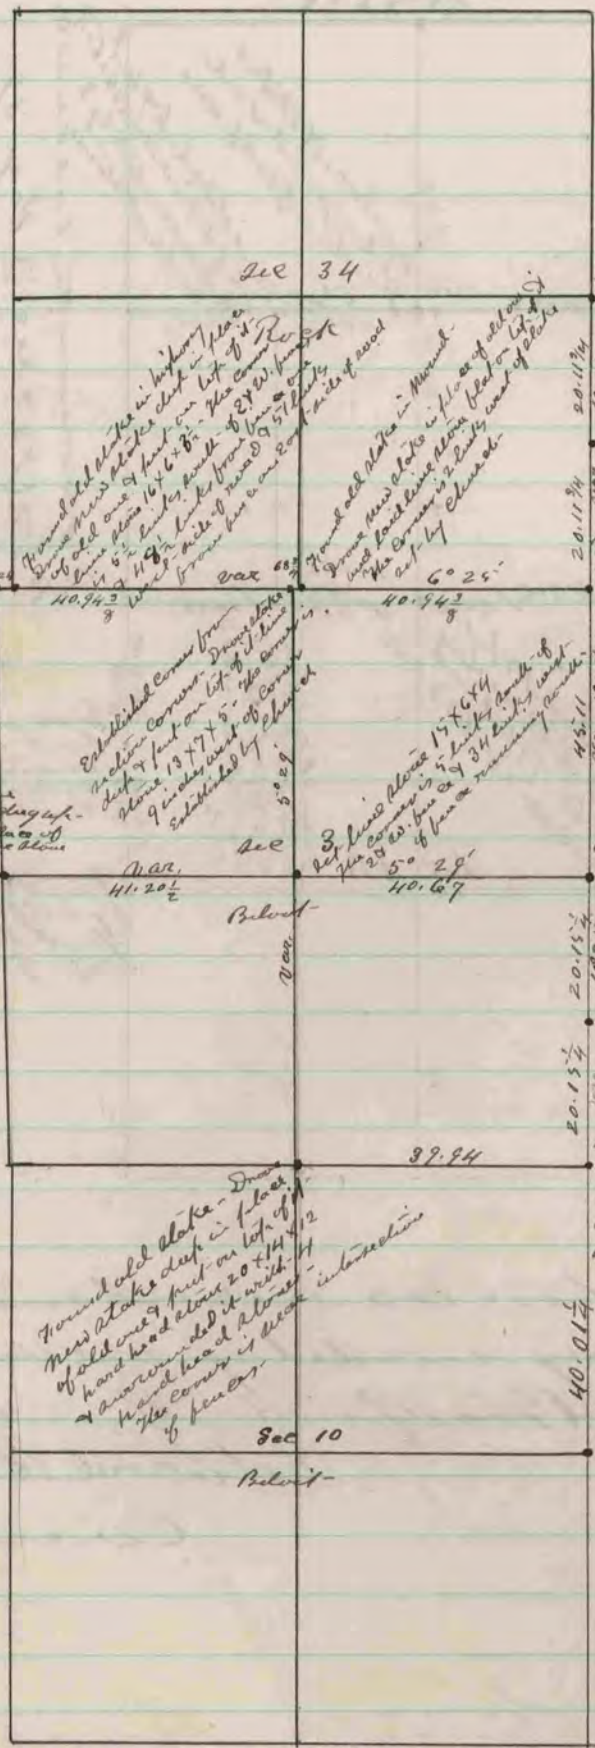 Sec 34
Rock
Found old stake in highway
Drove new stake deep in place
of old one & put on top of it
lime stone 16 x 6 x 3½ - The corner
is 5½ links south of E & W. fence
& 48½ links from fence on
west side of road & 57 links
from fence on east side of road
Found old stake in Mound-
Drove new stake in place of old one &
and laid lime stone flat on top of it
The corner is 2 links west of stake
set by Church-
20.11¾
20.11¾
40.94⅜
var
6° 25'
40.94⅜
Established Corner from
section corners. Drove stake
deep & put on top of it lime
stone 13 x 7 x 5 - The corner is
9 inches west of corner
Established by Church
5° 29'
Set lime stone 15 x 6 x 4
The corner is 5 links south of
E & W. fence & 34 links west
of fence running south-
45.11
Sec 3
Var.
5° 29'
41.20½
40.67
Beloit-
Var.
20.15¼
20.15¼
39.94
Found old stake - Drove
new stake deep in place
of old one & put on top of it-
hard head stone 20 x 14 x 12
& surrounded it with 4
hard head stones-
The corner is near intersection
of fences-
40.01¼
Sec 10
Beloit-